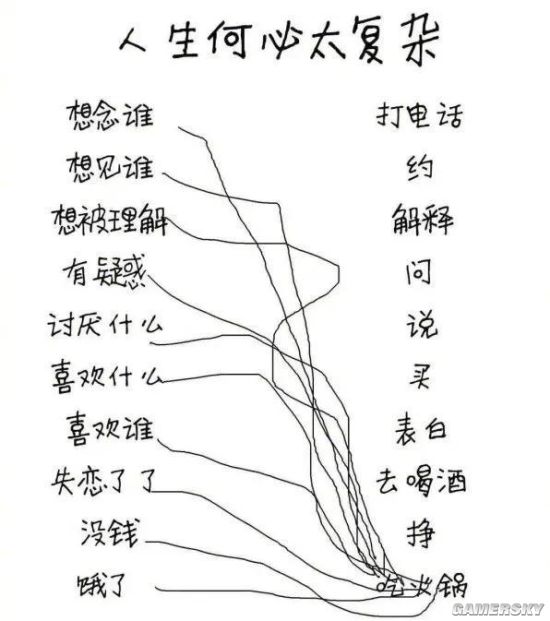 人生何必太复杂
想念谁 打电话
想见谁 约
想被理解 解释
有疑惑 问
讨厌什么 说
喜欢什么 买
喜欢谁 表白
失恋了了 去喝酒
没钱 挣
饿了 吃火锅
GAMERSKY